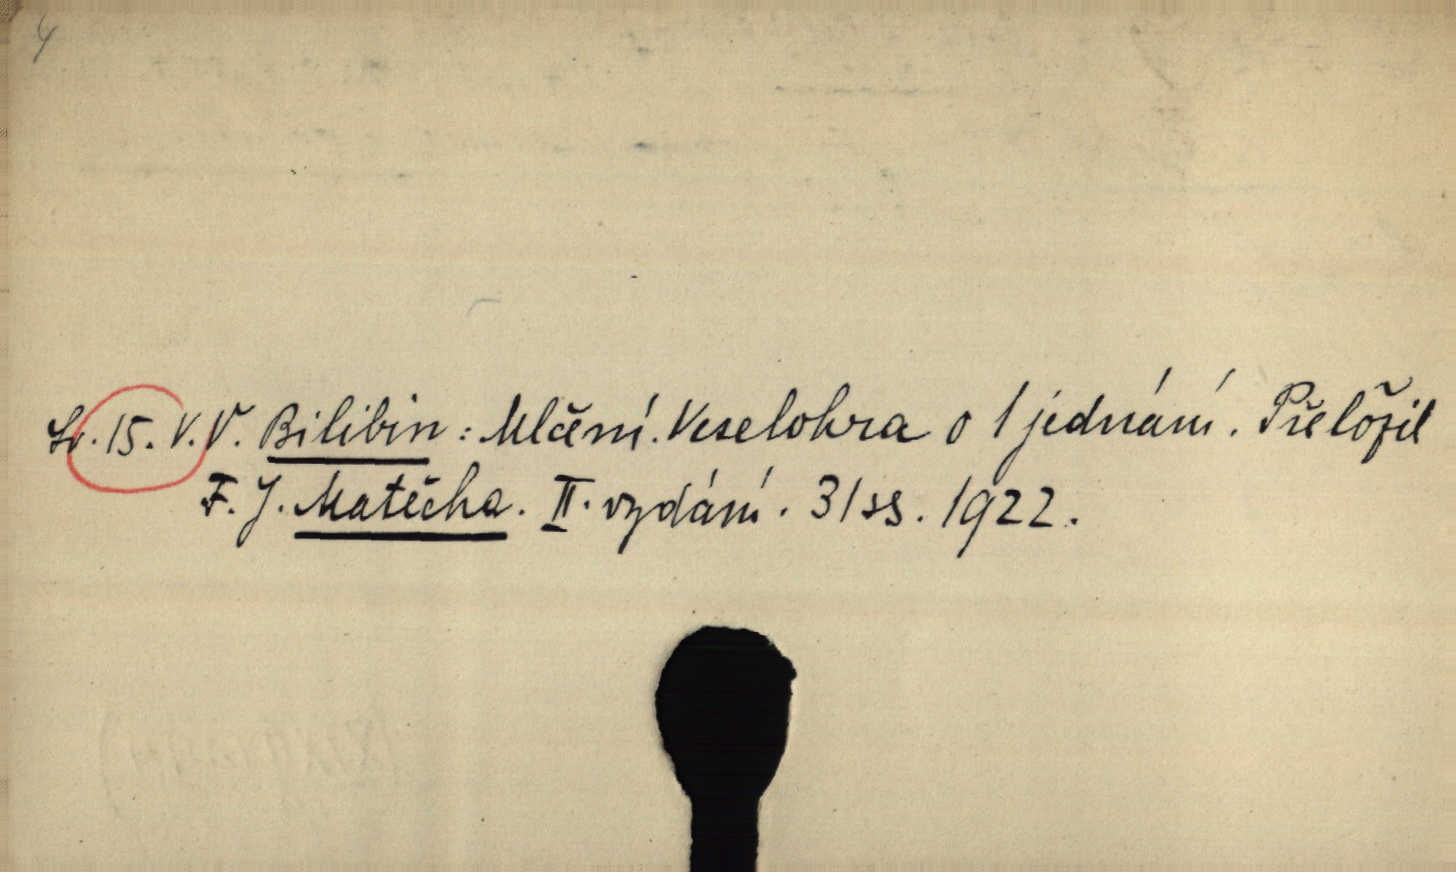 4
Sv. 15. V. V. Bilibin : Mlčení. Veselohra o 1 jednání. Přeložil
F. J. Matěcha. II. vydání. 31 ss. 1922.